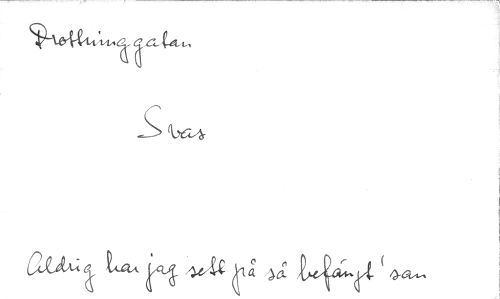 Drottninggatan
Svas
Aldrig har jag sett på så befängt 'san